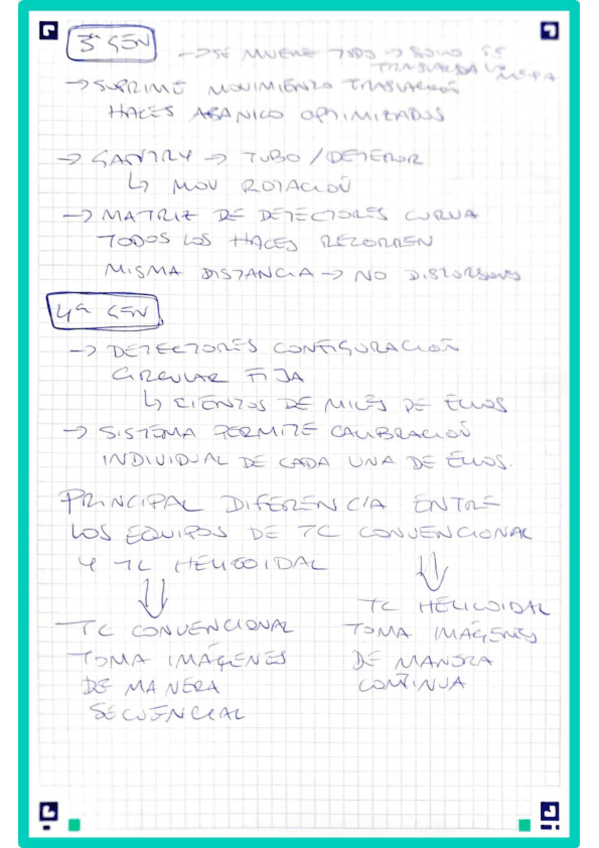 3ª GEN
→ SE MUEVE TODO → SOLO SE
TRASLADA LA MESA
→ SUPRIME MOVIMIENTO TRASLACIÓN
HACES ABANICO OPTIMIZADOS
→ GANTRY → TUBO / DETECTOR
↳ MOV ROTACIÓN
→ MATRIZ DE DETECTORES CURVA
TODOS LOS HACES RECORREN
MISMA DISTANCIA → NO DISTORSIONES
4ª GEN
→ DETECTORES CONFIGURACIÓN
CIRCULAR FIJA
↳ CIENTOS DE MILES DE ELLOS
→ SISTEMA PERMITE CALIBRACIÓN
INDIVIDUAL DE CADA UNA DE ELLOS.
PRINCIPAL DIFERENCIA ENTRE
LOS EQUIPOS DE TC CONVENCIONAL
Y TC HELICOIDAL
TC CONVENCIONAL
TOMA IMÁGENES
DE MANERA
SECUENCIAL
TC HELICOIDAL
TOMA IMÁGENES
DE MANERA
CONTINUA